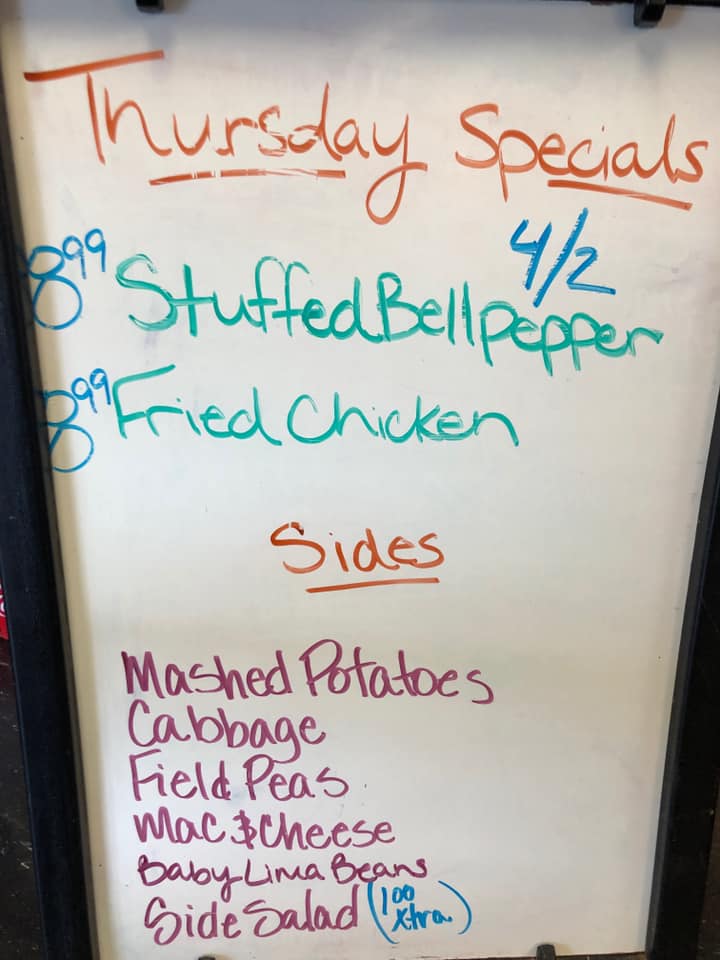 Thursday Specials
4/2
899 Stuffed Bellpepper
899 Fried Chicken
Sides
Mashed Potatoes
Cabbage
Field Peas
Mac $ Cheese
Baby Lima Beans
Side Salad (100 Xtra)